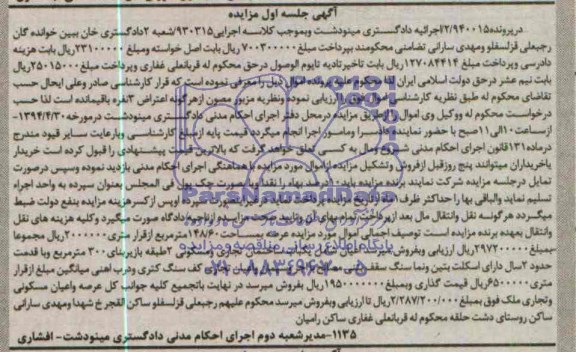 آگهی جلسه اول مزایده
درپرونده ۲/۹۴۰۰۱۵ اجرائیه دادگستری مینودشت وبموجب کلاسه اجرایی ۹۳۰۳۱۵/شعبه ۲دادگستری خان ببین خوانده گان
رجبعلی قزلسفلو ومهدی سارانی تضامنی محکومند بپرداخت مبلغ ۷۰۰۳۰۰۰۰۰ریال بابت اصل خواسته ومبلغ ۲۳۱۰۰۰۰۰ریال بابت هزینه
دادرسی وپرداخت مبلغ ۱۲۷۰۸۴۴۱۴ریال بابت تاخیرتادیه تایوم الوصول درحق محکوم له قربانعلی غفاری وپرداخت مبلغ ۲۵۰۱۵۰۰۰ریال
بابت نیم عشر درحق دولت اسلامی ایران محکوم علیه اموال ذیل را معرفی نموده است که قرار کارشناسی صادر وعلی ایحال حسب
تقاضای محکوم له طبق نظریه کارشناس ارزیابی نموده ونظریه مزبور مصون ازهرگونه اعتراض باقیمانده است لذا حسب
درخواست محکوم له ووکیل وی اموال از طریق مزایده درمحل دفتر اجرای احکام مدنی دادگستری مینودشت درمورخه ۱۳۹۴/۴/۳۰-
ازساعت ۱۰الی ۱۱صبح با حضور نماینده دادسرا ومامور اجرا انجام میگردد قیمت پایه ازمبلغ کارشناسی وبارعایت سایر قیود مندرج
درماده ۱۳۱قانون اجرای احکام مدنی ومال به کسی تعلق خواهد گرفت که بالاترین قیمت پیشنهادی را قبول کرده است خریدار
یاخریداران میتوانند پنج روزقبل ازفروش وتشکیل مزایده ازاموال مورد مزایده با هماهنگی اجرای احکام مدنی بازدید نموده وسپس درصورت
تمایل درجلسه مزایده شرکت نمایند برنده مزایده باید ده درصد بهاء را نقدا وبا صورت چک پول فی المجلس بعنوان سپرده به واحد اجراء
تسلیم نماید والباقی بها را حداکثر ظرف اویس ازکسرهزینه مزایده بنفع دولت ضبط
میگردد هرگونه نقل وانتقال مال بعد ازپرداخت تمام بهای آن وتایید صحت مزایده ازناحیه دادگاه صورت میگیرد وکلیه هزینه های نقل
وانتقال بعهده برنده مزایده است توصیف اجمالی اموال مورد مزایده عرصه بمساحت ۱۴۸/۶۰مترمربع ازقرار متری ۲۰۰۰۰۰۰ریال مجموعا
بمبلغ ۲۹۷۲۰۰۰۰۰ریال ارزیابی وبفروش میرسد اعیان شامل یکباب ساختمان تجاری ومسکونی ۲طبقه بازیربنای ۳۰۰ مترمربع وبا قدمت
حدود ۲سال دارای اسکلت بتین ونما سنگ سقف کف سنگ کتری ودرب اهنی میانگین مبلغ ازقرار
متری ۶۵۰۰۰۰۰ریال قیمت گذاری وبمبلغ ۱۹۵۰۰۰۰۰۰۰ریال بفروش میرسد در نهایت باتجمیع کلیه جوانب کل عرصه واعیان مسکونی
وتجاری ملک فوق بمبلغ ۲/۲۸۷/۲۰۰/۰۰۰ریال تا ارزیابی وبفروش میرسد محکوم علیهم رجبعلی قزلسفلو ساکن القجر خ شهدا ومهدی سارانی
ساکن روستای دشت حلقه محکوم له قربانعلی غفاری ساکن رامیان
۱۱۳۵-مدیرشعبه دوم اجرای احکام مدنی دادگستری مینودشت- افشاری
ParsNamadData
پایگاه اطلاع رسانی مناقصه ومزایده
۰۲۱-۸۸۳۴۹۶۷۰-۵